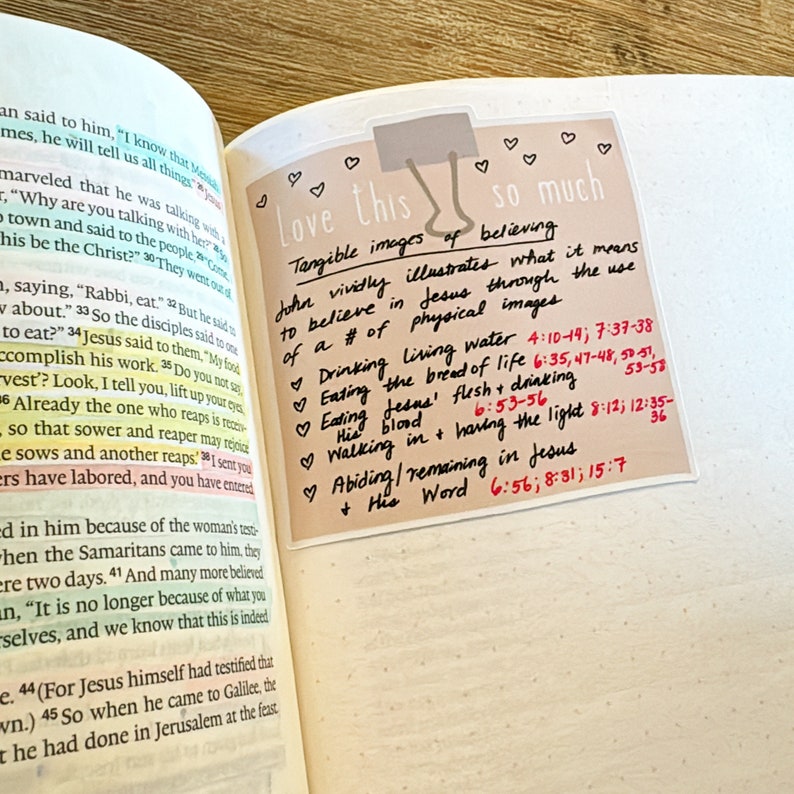 an said to him, “I know that Messiah
mes, he will tell us all things.” 26 Jesus
marveled that he was talking with a
r, “Why are you talking with her?” 28 So
o town and said to the people, 29 “Come,
his be the Christ?” 30 They went out of
, saying, “Rabbi, eat.” 32 But he said to
w about.” 33 So the disciples said to one
to eat?” 34 Jesus said to them, “My food
ccomplish his work. 35 Do you not say,
rvest’? Look, I tell you, lift up your eyes,
36 Already the one who reaps is receiv-
, so that sower and reaper may rejoice
e sows and another reaps.’ 38 I sent you
ers have labored, and you have entered
ed in him because of the woman’s testi-
hen the Samaritans came to him, they
ere two days. 41 And many more believed
an, “It is no longer because of what you
rselves, and we know that this is indeed
e. 44 (For Jesus himself had testified that
wn.) 45 So when he came to Galilee, the
t he had done in Jerusalem at the feast.
Love this so much
Tangible images of believing
John vividly illustrates what it means
to believe in Jesus through the use
of a # of physical images
♡ Drinking living water 4:10-14; 7:37-38
♡ Eating the bread of life 6:35, 47-48, 50-51,
53-58
♡ Eating Jesus' flesh + drinking
His blood 6:53-56
♡ Walking in + having the light 8:12; 12:35-
36
♡ Abiding/remaining in Jesus
+ His Word 6:56; 8:31; 15:7